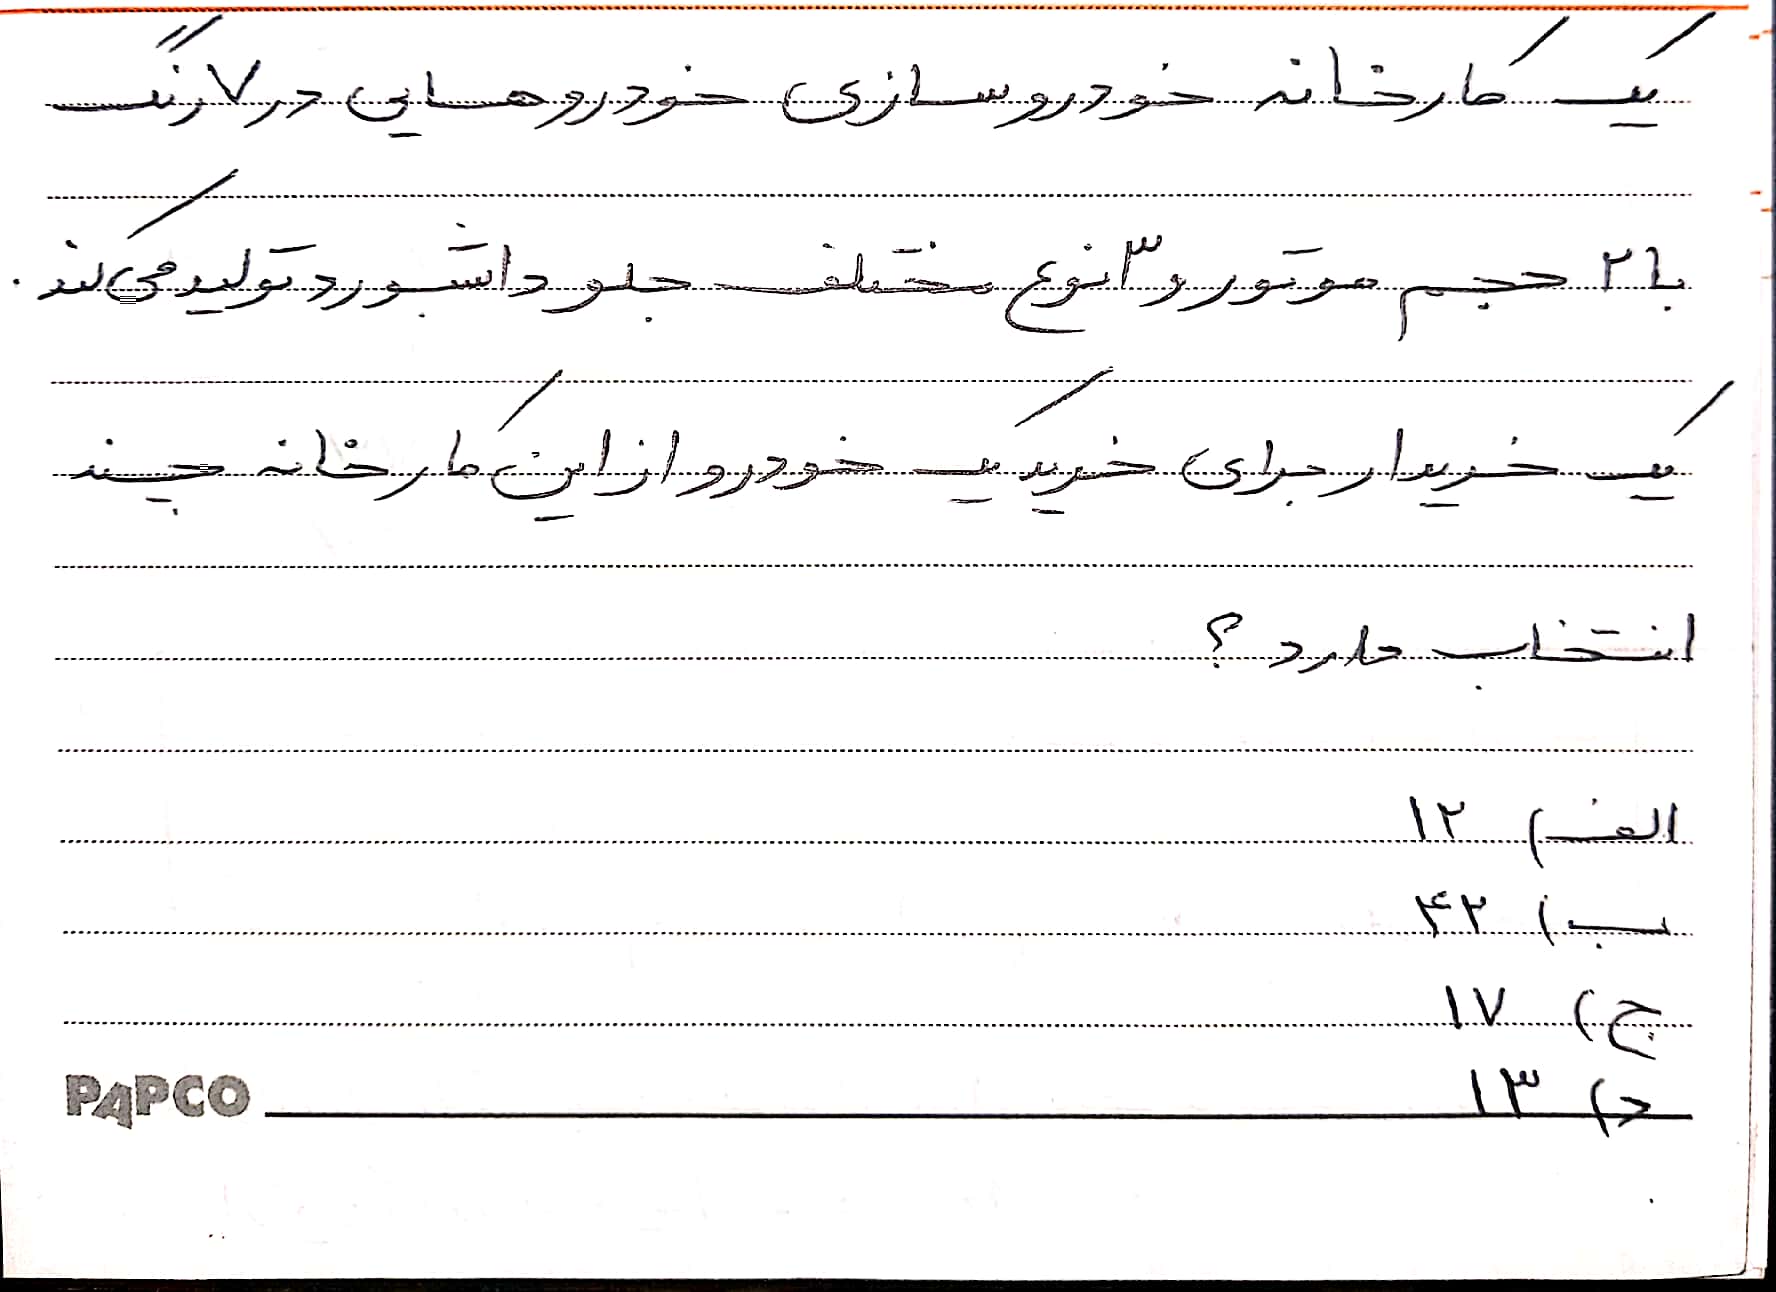 یک کارخانه خودروسازی خودروهایی در ۷ رنگ
با ۲ حجم موتور و ۳ نوع مختلف جلو داشبورد تولید می‌کند.
یک خریدار برای خرید یک خودرو از این کارخانه چند
انتخاب دارد؟
الف) ۱۲
ب) ۴۲
ج) ۱۷
د) ۱۳
PAPCO